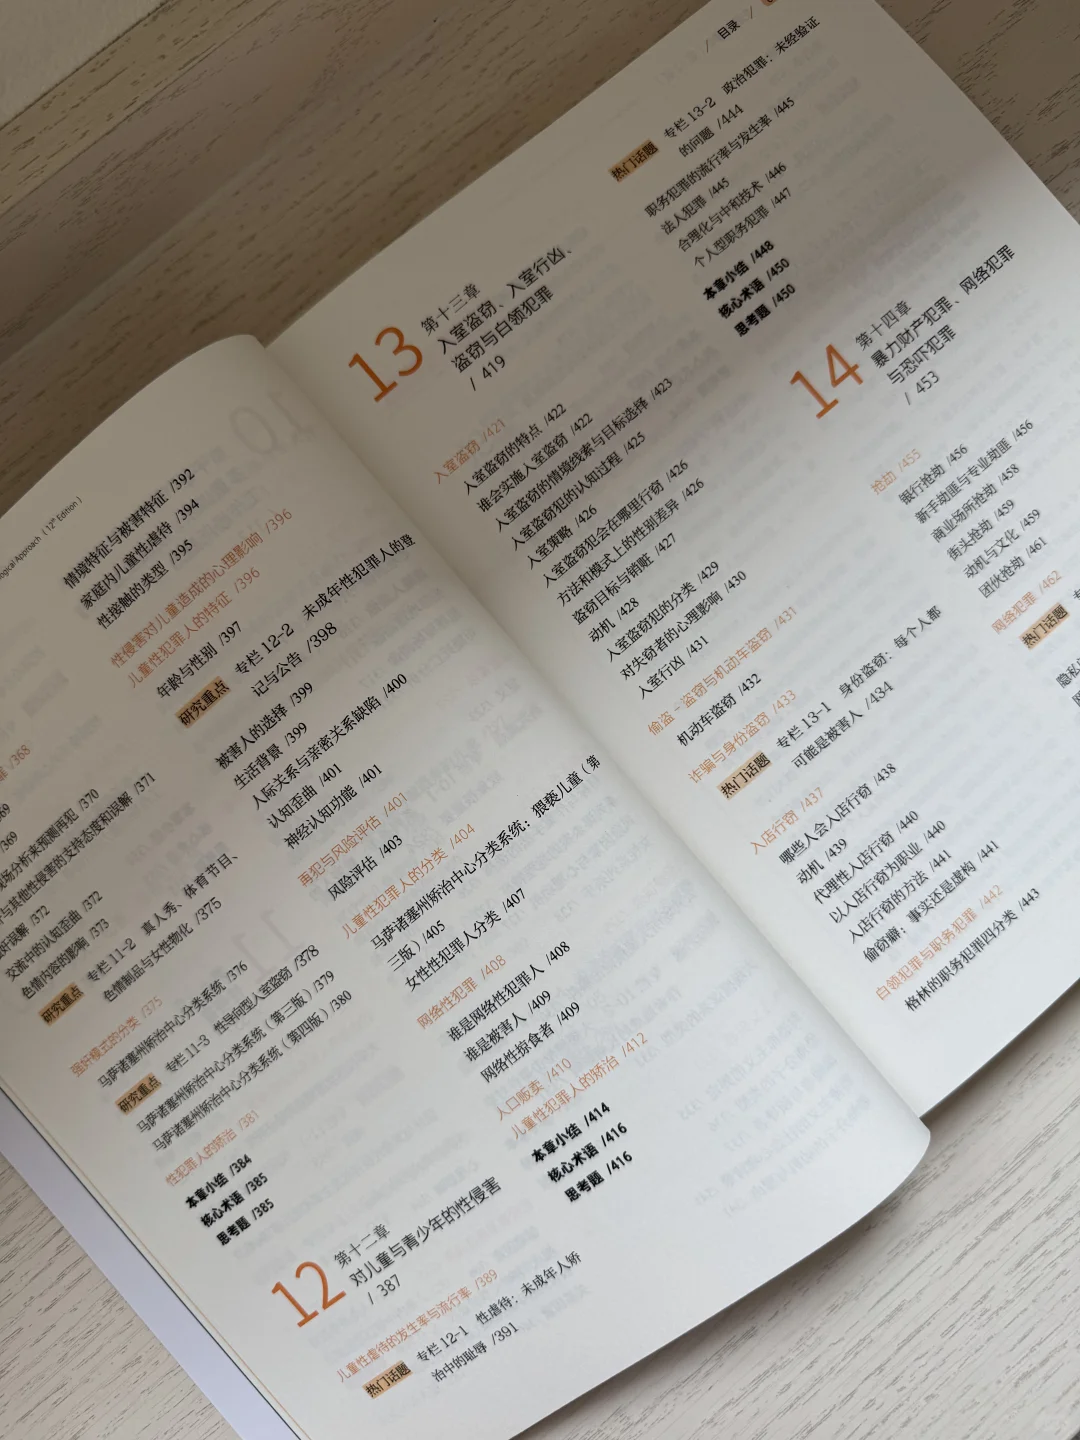 logical Approach ( 12th Edition )
368
69
/369
现场分析来预测再犯 /370
与其他性侵害的支持态度和误解 /371
奸误解 /372
交流中的认知歪曲 /372
色情内容的影响 /373
研究重点 专栏 11-2 真人秀、体育节目、
色情制品与女性物化 /375
强奸模式的分类 /375
马萨诸塞州矫治中心分类系统 /376
研究重点 专栏 11-3 性导向型入室盗窃 /378
马萨诸塞州矫治中心分类系统（第三版）/379
马萨诸塞州矫治中心分类系统（第四版）/380
性犯罪人的矫治 /381
本章小结 /384
核心术语 /385
思考题 /385
12 第十二章
对儿童与青少年的性侵害
/ 387
儿童性虐待的发生率与流行率 /389
热门话题 专栏 12-1 性虐待：未成年人矫
治中的耻辱 /391
情境特征与被害特征 /392
家庭内儿童性虐待 /394
性接触的类型 /395
性侵害对儿童造成的心理影响 /396
儿童性犯罪人的特征 /396
年龄与性别 /397
研究重点 专栏 12-2 未成年性犯罪人的登
记与公告 /398
被害人的选择 /399
生活背景 /399
人际关系与亲密关系缺陷 /400
认知歪曲 /401
神经认知功能 /401
再犯与风险评估 /401
风险评估 /403
儿童性犯罪人的分类 /404
马萨诸塞州矫治中心分类系统：猥亵儿童（第
三版）/405
女性性犯罪人分类 /407
网络性犯罪 /408
谁是网络性犯罪人 /408
谁是被害人 /409
网络性掠食者 /409
人口贩卖 /410
儿童性犯罪人的矫治 /412
本章小结 /414
核心术语 /416
思考题 /416
/ 目录 /
13 第十三章
入室盗窃、入室行凶、
盗窃与白领犯罪
/ 419
入室盗窃 /421
入室盗窃的特点 /422
谁会实施入室盗窃 /422
入室盗窃的情境线索与目标选择 /423
入室盗窃犯的认知过程 /425
入室策略 /426
入室盗窃犯会在哪里行窃 /426
方法和模式上的性别差异 /426
盗窃目标与销赃 /427
动机 /428
入室盗窃犯的分类 /429
对失窃者的心理影响 /430
入室行凶 /431
偷盗－盗窃与机动车盗窃 /431
机动车盗窃 /432
诈骗与身份盗窃 /433
热门话题 专栏 13-1 身份盗窃：每个人都
可能是被害人 /434
入店行窃 /437
哪些人会入店行窃 /438
动机 /439
代理性入店行窃 /440
以入店行窃为职业 /440
入店行窃的方法 /441
偷窃癖：事实还是虚构 /441
白领犯罪与职务犯罪 /442
格林的职务犯罪四分类 /443
热门话题 专栏 13-2 政治犯罪：未经验证
的问题 /444
职务犯罪的流行率与发生率 /445
法人犯罪 /445
合理化与中和技术 /446
个人型职务犯罪 /447
本章小结 /448
核心术语 /450
思考题 /450
14 第十四章
暴力财产犯罪、网络犯罪
与恐吓犯罪
/ 453
抢劫 /455
银行抢劫 /456
新手劫匪与专业劫匪 /456
商业场所抢劫 /458
街头抢劫 /459
动机与文化 /459
团伙抢劫 /461
网络犯罪 /462
热门话题
隐私